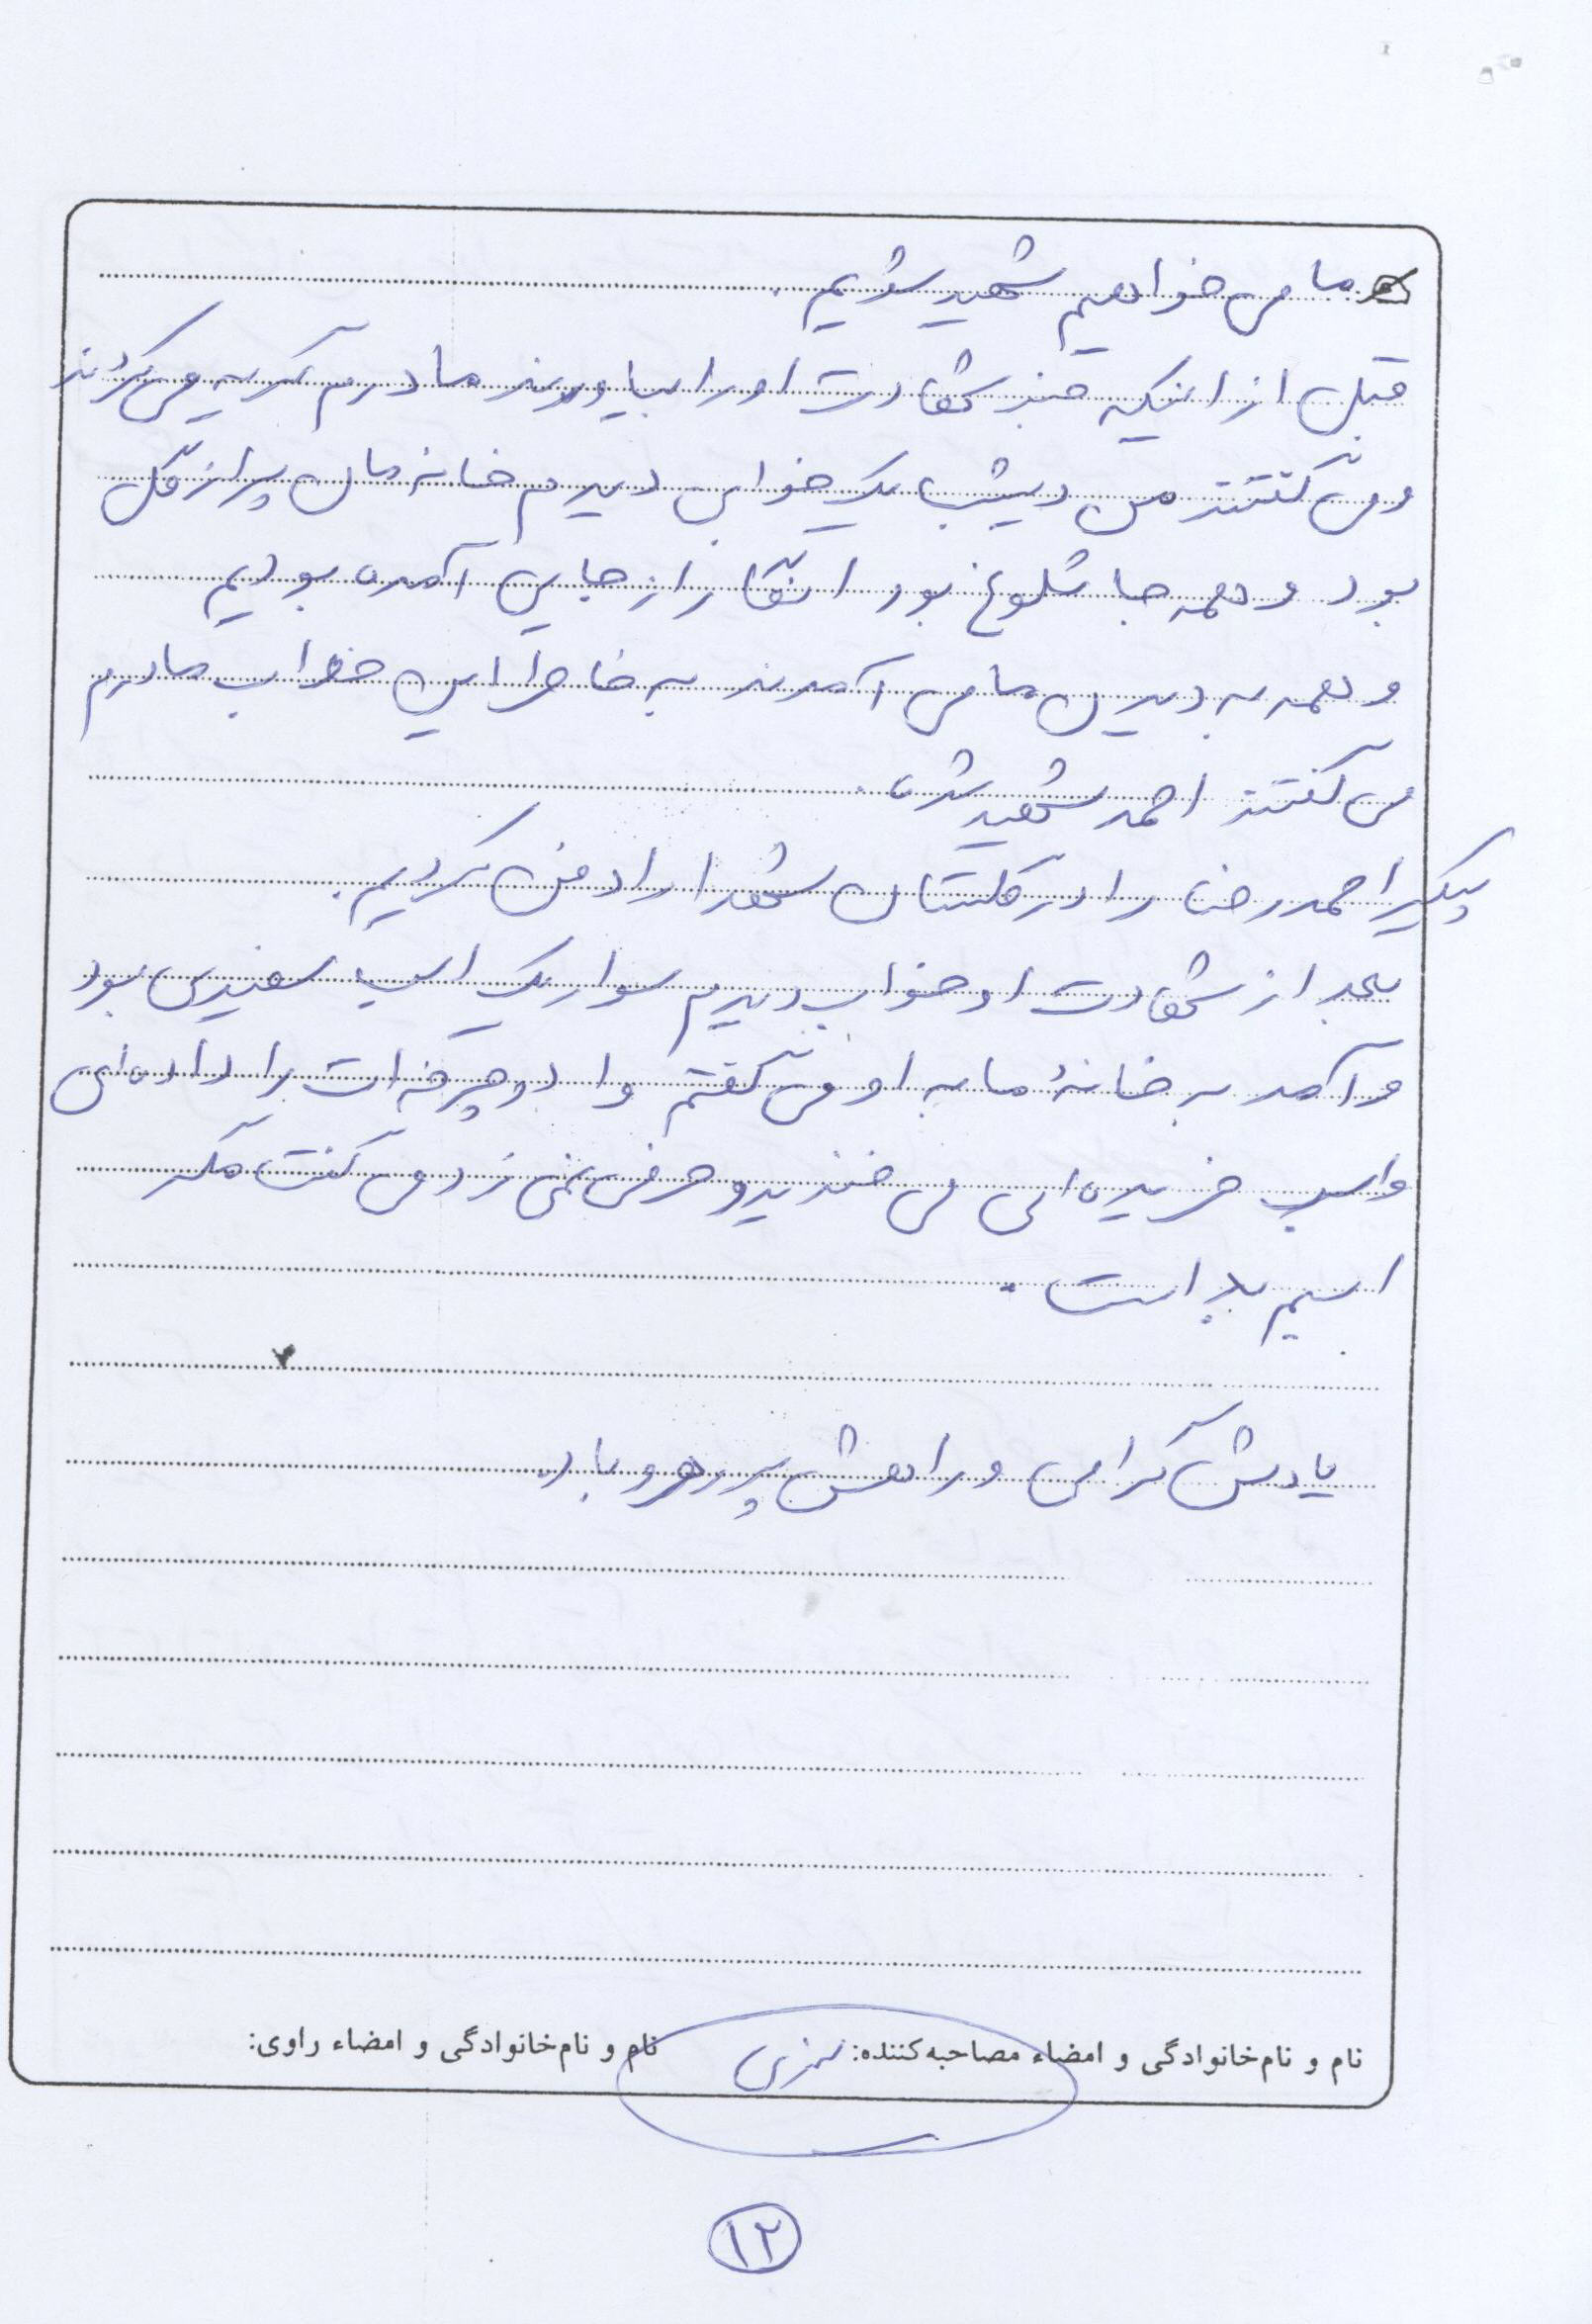 ما می خواهیم شهید شویم.
قبل از اینکه خبر شهادت او را بیاورند مادرم گریه می کردند
و می گفتند من دیشب یک خوابی دیدم خانه مان پر از گل
بود و همه جا شلوغ بود انگار از جایی آمده بودیم
و همه به دیدن ما می آمدند به خاطر این خواب مادرم
می گفتند احمد شهید شده.
پیکر احمدرضا را در گلستان شهدا را دفن کردیم.
بعد از شهادت او خواب دیدم سوار یک اسب سفیدی بود
و آمد به خانهٔ ما به او می گفتم وا دوچرخه ات را داده ای
و اسب خریده ای می خندید و حرفی نمی زد می گفت مگر
اسبم بد است.
یادش گرامی و راهش پر رهرو باد
نام و نام‌خانوادگی و امضاء مصاحبه‌کننده: نام و نام‌خانوادگی و امضاء راوی:
۱۲